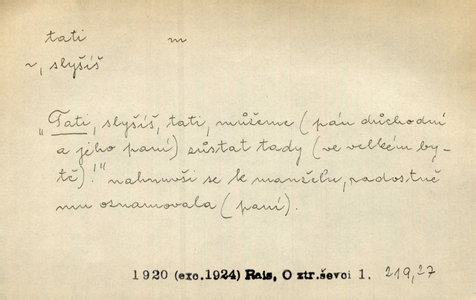 tati m
~, slyšíš
"Tati, slyšíš, tati, můžeme (pán důchodní
a jeho paní) zůstat tady (ve velkém by-
tě)!" nahnuvši se k manželu, radostně
mu oznamovala (paní).
1920 (exc.1924) Rais, O ztr.ševci 1. 219,27